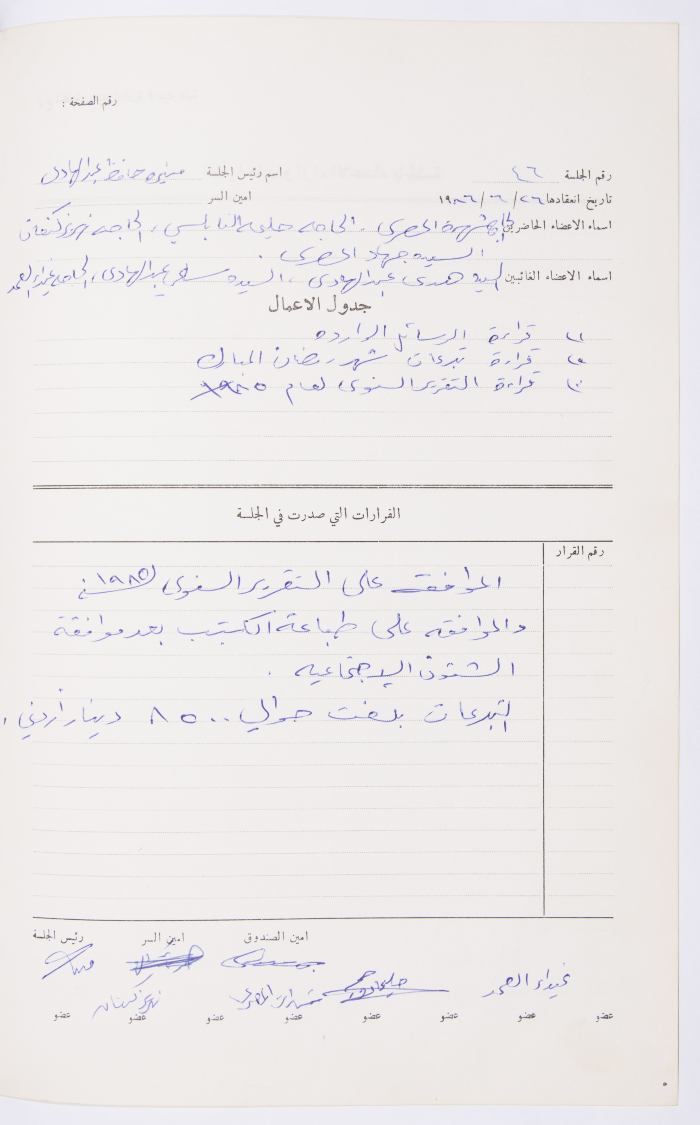 رقم الصفحة :
رقم الجلسة ٤٦ اسم رئيس الجلسة منيره حافظ عبدالهادي
تاريخ انعقادها ٢٦/٦/١٩٨٦ امين السر
اسماء الاعضاء الحاضرين الحاجه شهيرة المصري ، الحاجه حليمه النابلسي ، الحاجه نهيز كنعان
السيده جهاد المصري .
اسماء الاعضاء الغائبين السيده هدى عبدالهادي ، السيده عبدالهادي ، الحاجه غيداء الصمد
جدول الاعمال
١) قراءة الرسائل الوارده
٢) قراءة تبرعات شهر رمضان المبارك
٣) قراءة التقرير السنوي لعام ١٩٨٥
القرارات التي صدرت في الجلسة
رقم القرار
الموافقه على التقرير السنوي ١٩٨٥
والموافقه على طباعة الكتيب بعد موافقة
الشئون الاجتماعيه .
التبرعات بلغت حوالي ٨٥٠٠ دينار أردني .
امين الصندوق امين السر رئيس الجلسة
غيداء الصمد
عضو عضو عضو عضو عضو عضو عضو عضو